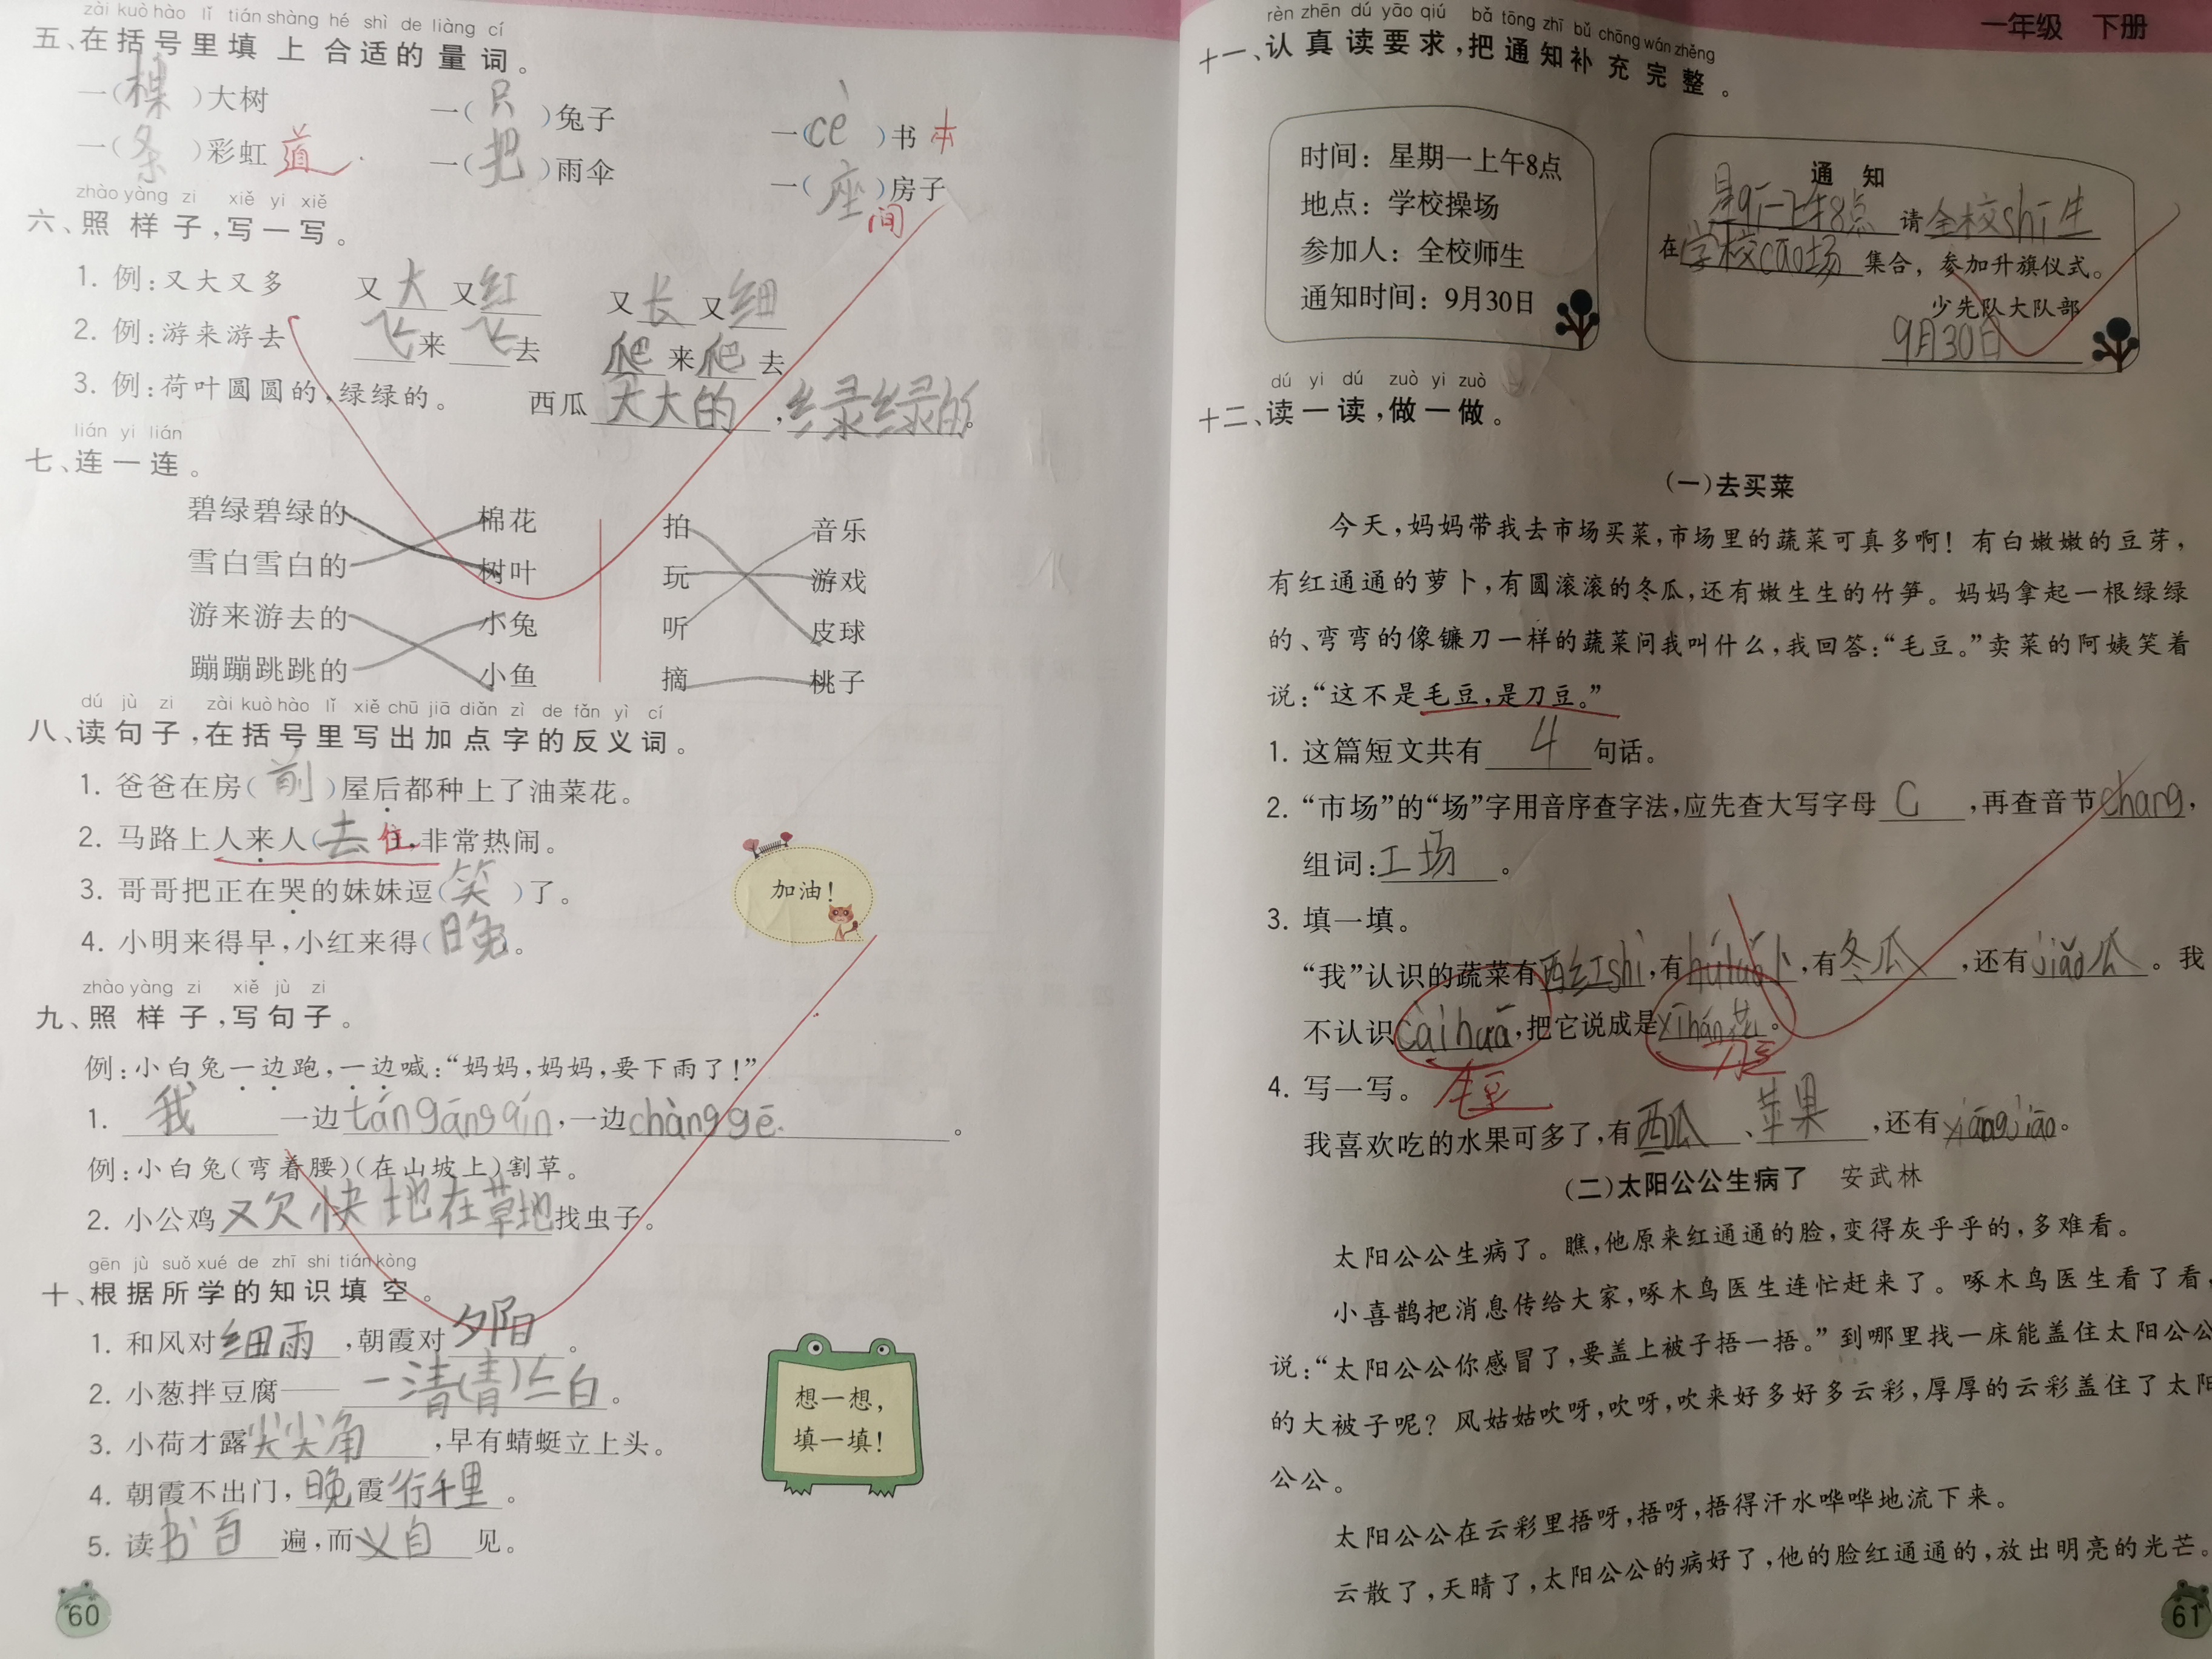 zài kuò hào lǐ tián shàng hé shì de liàng cí
五、在括号里填上合适的量词。
一(棵)大树 一(只)兔子 一(cè)书 本
一(条)彩虹 道 一(把)雨伞 一(座)房子 间
zhào yàng zi xiě yi xiě
六、照样子,写一写。
1. 例:又大又多 又大又红 又长又细
2. 例:游来游去 飞来飞去 爬来爬去
3. 例:荷叶圆圆的,绿绿的。 西瓜大大的,绿绿的。
lián yi lián
七、连一连。
碧绿碧绿的 棉花 拍 音乐
雪白雪白的 树叶 玩 游戏
游来游去的 小兔 听 皮球
蹦蹦跳跳的 小鱼 摘 桃子
dú jù zi zài kuò hào lǐ xiě chū jiā diǎn zì de fǎn yì cí
八、读句子,在括号里写出加点字的反义词。
1. 爸爸在房(前)屋后都种上了油菜花。
2. 马路上人来人(去 往),非常热闹。
3. 哥哥把正在哭的妹妹逗(笑)了。
4. 小明来得早,小红来得(晚)。
加油!
zhào yàng zi xiě jù zi
九、照样子,写句子。
例:小白兔一边跑,一边喊:“妈妈,妈妈,要下雨了!”
1. 我一边tán gāng qín,一边chàng gē.。
例:小白兔(弯着腰)(在山坡上)割草。
2. 小公鸡又欠快地在草地找虫子。
gēn jù suǒ xué de zhī shi tián kòng
十、根据所学的知识填空。
1. 和风对细雨,朝霞对夕阳。
2. 小葱拌豆腐——一清(青)二白。
3. 小荷才露尖尖角,早有蜻蜓立上头。
4. 朝霞不出门,晚霞行千里。
5. 读书百遍,而义自见。
想一想,
填一填!
60
一年级 下册
rèn zhēn dú yāo qiú bǎ tōng zhī bǔ chōng wán zhěng
十一、认真读要求,把通知补充完整。
时间:星期一上午8点
地点:学校操场
参加人:全校师生
通知时间:9月30日
通 知
星qī一上午8点 请全校shī生
在学校cāo场集合,参加升旗仪式。
少先队大队部
9月30日
dú yi dú zuò yi zuò
十二、读一读,做一做。
(一)去买菜
今天,妈妈带我去市场买菜,市场里的蔬菜可真多啊!有白嫩嫩的豆芽,
有红通通的萝卜,有圆滚滚的冬瓜,还有嫩生生的竹笋。妈妈拿起一根绿绿
的、弯弯的像镰刀一样的蔬菜问我叫什么,我回答:“毛豆。”卖菜的阿姨笑着
说:“这不是毛豆,是刀豆。”
1. 这篇短文共有4句话。
2. “市场”的“场”字用音序查字法,应先查大写字母C,再查音节chang,
组词:工场。
3. 填一填。
“我”认识的蔬菜有西红shì,有hú luó卜,有冬瓜,还有jiāo瓜。我
不认识cài huā,把它说成是xī hán花。
毛豆 刀豆
4. 写一写。
我喜欢吃的水果可多了,有西瓜、苹果,还有xiāng jiāo。
(二)太阳公公生病了 安武林
太阳公公生病了。瞧,他原来红通通的脸,变得灰乎乎的,多难看。
小喜鹊把消息传给大家,啄木鸟医生连忙赶来了。啄木鸟医生看了看,
说:“太阳公公你感冒了,要盖上被子捂一捂。”到哪里找一床能盖住太阳公公
的大被子呢?风姑姑吹呀,吹呀,吹来好多好多云彩,厚厚的云彩盖住了太阳
公公。
太阳公公在云彩里捂呀,捂呀,捂得汗水哗哗地流下来。
云散了,天晴了,太阳公公的病好了,他的脸红通通的,放出明亮的光芒。
61